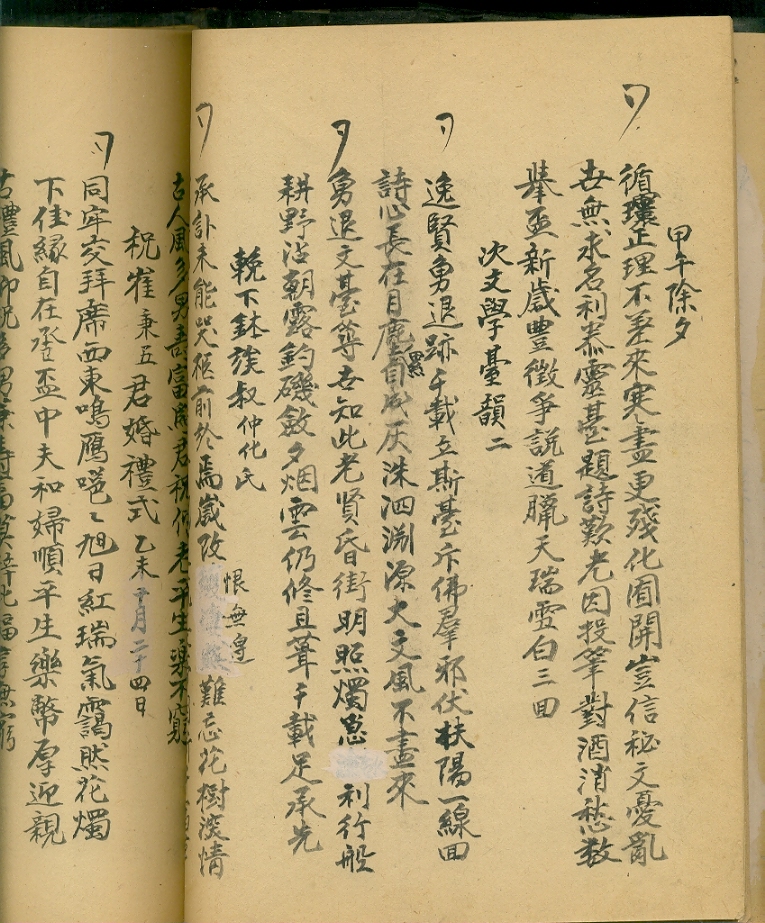 甲午除夕
循環正理不差來寒盡更殘化囿開豈信秘文憂亂
世無求名利恭靈臺題詩歎老因投筆對酒消愁數
擧盃新歲豊徵爭說道臘天瑞雪白三回
次文學臺韻二
逸賢勇退跡千載立斯臺斥佛羣邪伏扶陽一線回
詩心長在月塵累自成灰洙泗淵源大文風不盡來
勇退文臺等世知此老賢昏街明照燭 利行船
耕野沾朝露釣磯斂夕烟雲仍修且葺千載足承先
輓下鉢族叔仲化氏
承訃未能哭柩前於焉歲改恨無 難忘花樹深情
古人風多男壽富 君祝何老平生樂不窮
祝崔秉五君婚禮式 乙未 月二十四日
同牢交拜席西東鳴鴈嗈〻旭日紅瑞氣靄然花燭
下佳緣自在登盃中夫和婦順平生樂幣厚迎親
古禮風 福 無窮